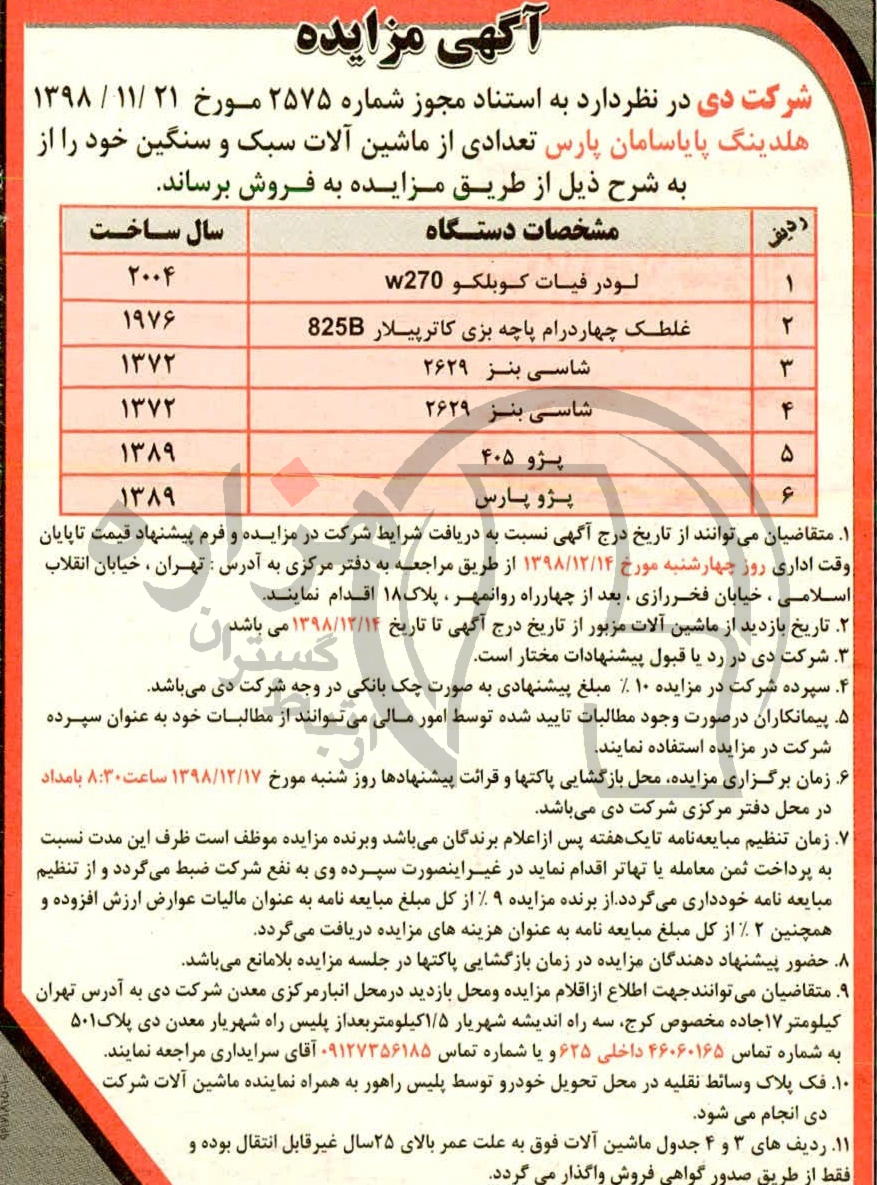 آگهی مزایده
شرکت دی در نظردارد به استناد مجوز شماره ۲۵۷۵ مـورخ ۲۱ /۱۱ / ۱۳۹۸
هلدینگ پایاسامان پارس تعدادی از ماشین آلات سبک و سنگین خود را از
به شرح ذیل از طریـق مـزایـده به فـروش برساند.
ردیف مشخصات دستـگاه سال ساخـت
۱ لـودر فیـات کـوبلکـو w270 ۲۰۰۴
۲ غلطـک چهاردرام پاچه بزی کاترپیـلار 825B ۱۹۷۶
۳ شاسـی بنـز ۲۶۲۹ ۱۳۷۲
۴ شاسـی بنـز ۲۶۲۹ ۱۳۷۲
۵ پـژو ۴۰۵ ۱۳۸۹
۶ پـژو پـارس ۱۳۸۹
۱. متقاضیان می‌توانند از تاریخ درج آگهی نسبت به دریافت شرایط شرکت در مزایـده و فرم پیشنهاد قیمت تاپایان
وقت اداری روز چهارشنبه مورخ ۱۳۹۸/۱۲/۱۴ از طریق مراجعـه به دفتر مرکزی به آدرس : تهـران ، خیابان انقلاب
اسـلامـی ، خیابان فخـررازی ، بعد از چهارراه روانمهـر ، پلاک۱۸ اقـدام نماینـد.
۲. تاریخ بازدید از ماشین آلات مزبور از تاریخ درج آگهی تا تاریخ ۱۳۹۸/۱۲/۱۴ می باشد
۳. شرکت دی در رد یا قبول پیشنهادات مختار است.
۴. سپرده شرکت در مزایده ۱۰ ٪ مبلغ پیشنهادی به صورت چک بانکی در وجه شرکت دی می‌باشد.
۵. پیمانکاران درصورت وجود مطالبات تایید شده توسط امور مـالی می‌تـوانند از مطالبـات خود به عنوان سپـرده
شرکت در مزایده استفاده نمایند.
۶. زمان برگـزاری مزایده، محل بازگشایی پاکتها و قرائت پیشنهادها روز شنبه مورخ ۱۳۹۸/۱۲/۱۷ ساعت۸:۳۰ بامداد
در محل دفتر مرکزی شرکت دی می‌باشد.
۷. زمان تنظیم مبایعه‌نامه تایک‌هفته پس ازاعلام برندگان می‌باشد وبرنده مزایده موظف است ظرف این مدت نسبت
به پرداخت ثمن معامله یا تهاتر اقدام نماید در غیـراینصورت سپـرده وی به نفع شرکت ضبط می‌گردد و از تنظیم
مبایعه نامه خودداری می‌گردد.از برنده مزایده ۹ ٪ از کل مبلغ مبایعه نامه به عنوان مالیات عوارض ارزش افزوده و
همچنین ۲ ٪ از کل مبلغ مبایعه نامه به عنوان هزینه های مزایده دریافت می‌گردد.
۸. حضور پیشنهاد دهندگان مزایده در زمان بازگشایی پاکتها در جلسه مزایده بلامانع می‌باشد.
۹. متقاضیان می‌توانندجهت اطلاع ازاقلام مزایده ومحل بازدید درمحل انبارمرکزی معدن شرکت دی به آدرس تهران
کیلومتر۱۷جاده مخصوص کرج، سه راه اندیشه شهریار ۱/۵کیلومتربعداز پلیس راه شهریار معدن دی پلاک۵۰۱
به شماره تماس ۴۶۰۶۰۱۶۵ داخلی ۶۲۵ و یا شماره تماس ۰۹۱۲۷۳۵۶۱۸۵ آقای سرایداری مراجعه نمایند.
۱۰. فک پلاک وسائط نقلیه در محل تحویل خودرو توسط پلیس راهور به همراه نماینده ماشین آلات شرکت
دی انجام می شود.
۱۱. ردیف های ۳ و ۴ جدول ماشین آلات فوق به علت عمر بالای ۲۵سال غیرقابل انتقال بوده و
فقط از طریق صدور گواهی فروش واگذار می گردد.
هزاره
گستران